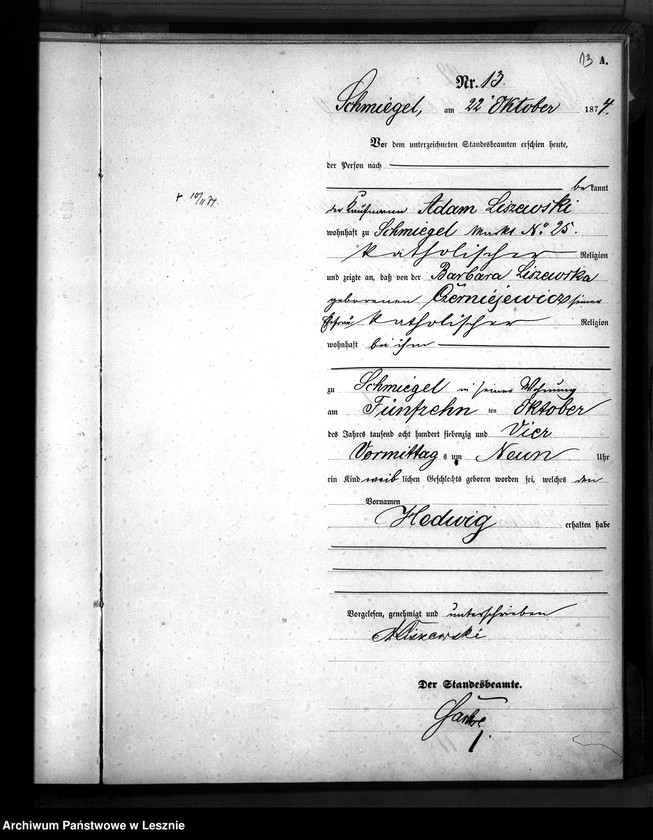 13 A.
Nr. 13.
Schmiegel, am 22. Oktober 1874.
Vor dem unterzeichneten Standesbeamten erschien heute,
der Person nach
bekannt
+ 10/11 74.
der Kaufmann Adam Liszewski
wohnhaft zu Schmiegel Markt No. 25.
katholischer Religion
und zeigte an, daß von der Barbara Liszewska
geborenen Czerniejewicz seiner
Ehefrau katholischer Religion
wohnhaft bei ihm
zu Schmiegel in seiner Wohnung
am Fünfzehn ten Oktober
des Jahres tausend acht hundert siebenzig und Vier
Vormittags um Neun Uhr
ein Kind weiblichen Geschlechts geboren worden sei, welches den
Vornamen
Hedwig erhalten habe
Vorgelesen, genehmigt und unterschrieben
A Liszewski
Der Standesbeamte.
Archiwum Państwowe w Lesznie